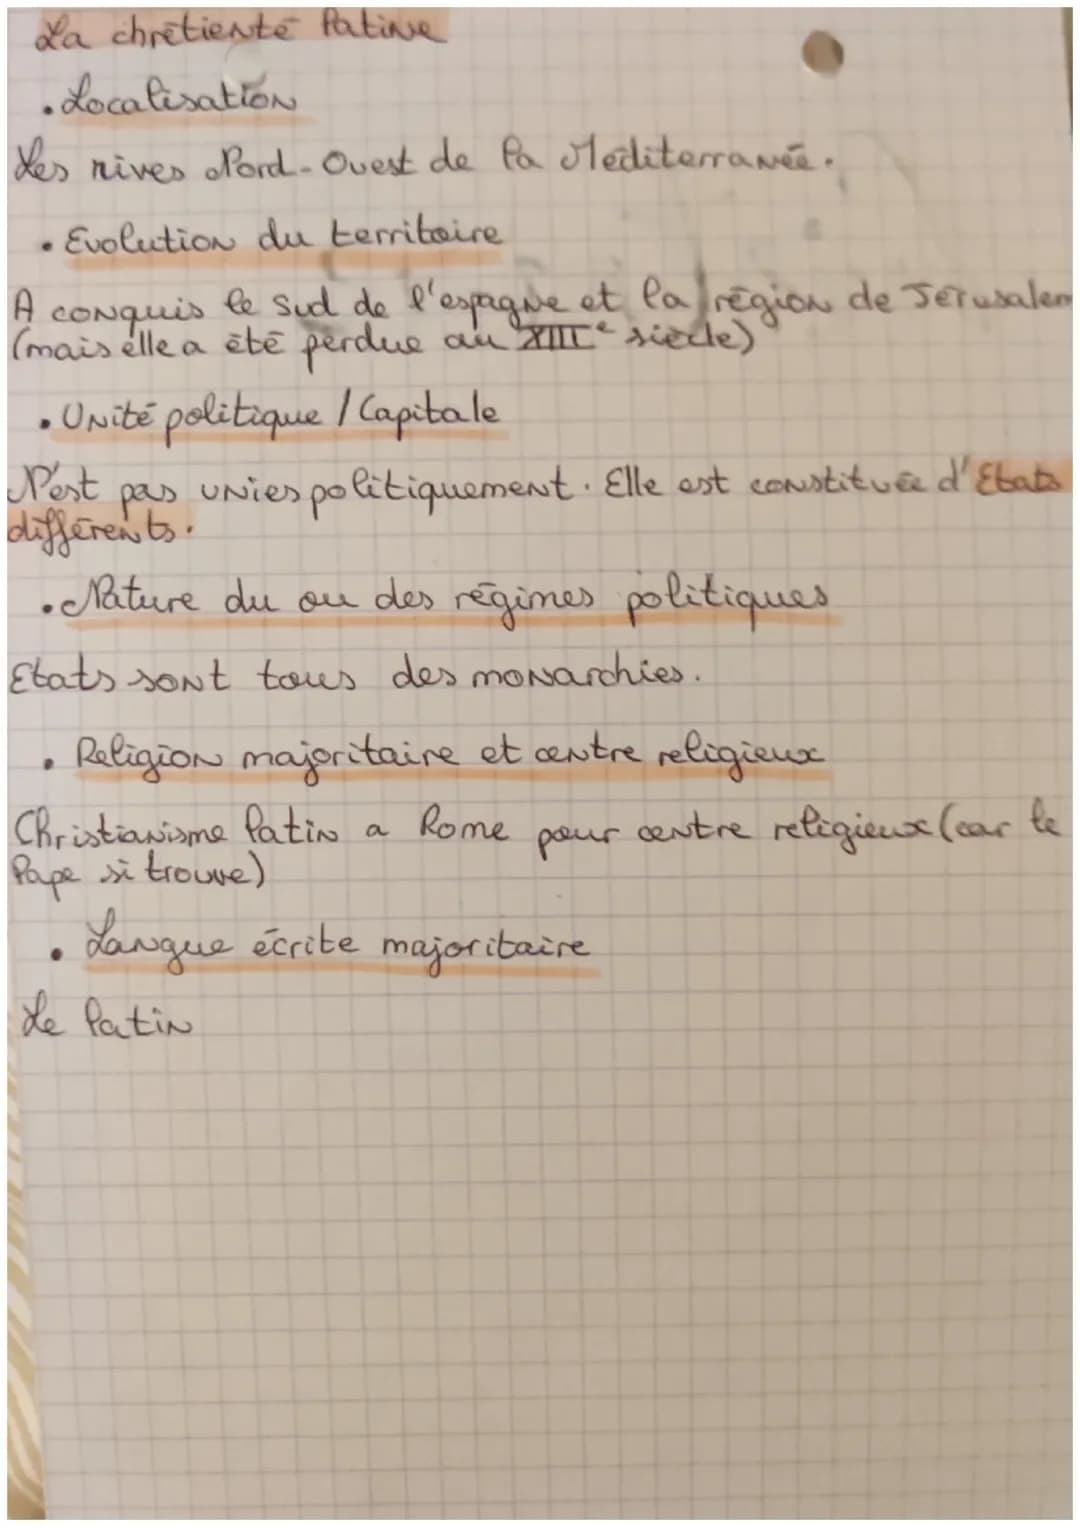 La chrétienté latine
• Localisation
Les rives Nord-Ouest de la Méditerranée.
• Evolution du territoire
A conquis le Sud de l'espagne et la région de Jérusalem
(mais elle a été perdue au XIIIe siècle)
• Unité politique / Capitale
N'est pas unies politiquement. Elle est constituée d'Etats
différents.
• Nature du ou des régimes politiques
Etats sont tous des monarchies.
• Religion majoritaire et centre religieux
Christianisme latin a Rome pour centre religieux (car le
Pape si trouve)
• Langue écrite majoritaire
Le latin